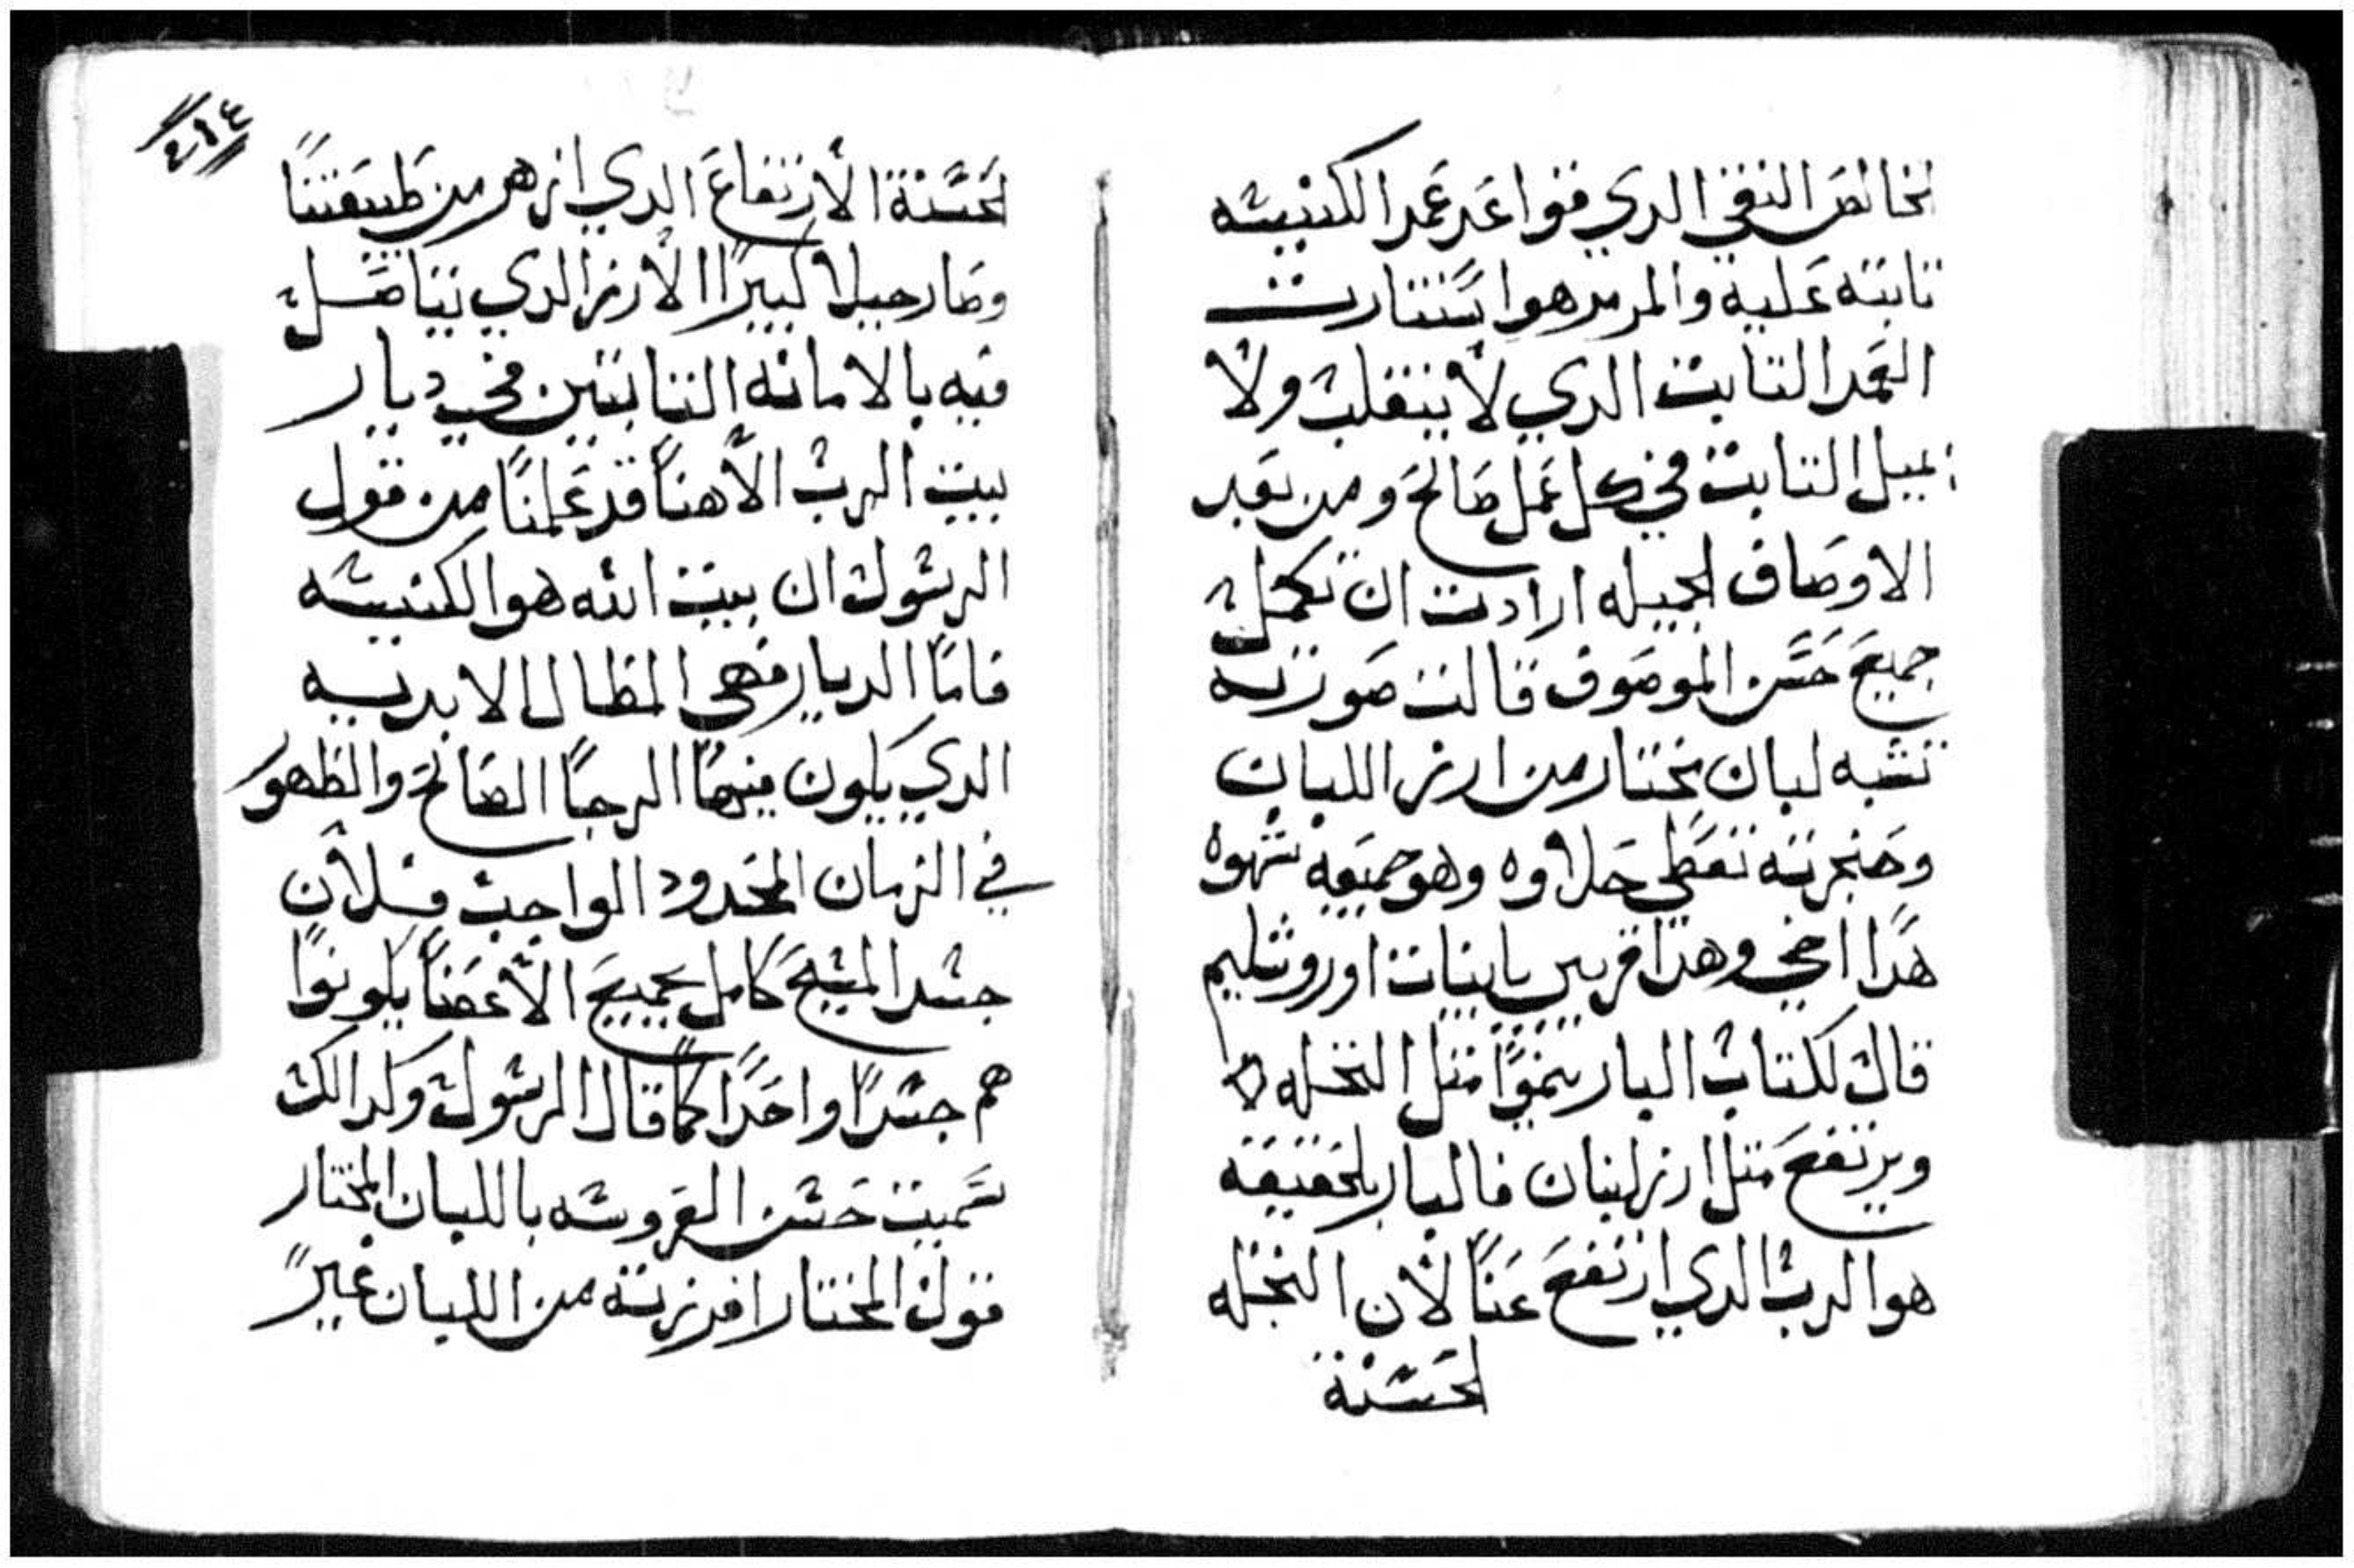 لخالص النقي الدي قواعد عمد الكنيسه
تابته عليه والمرمر هوا يستنارت
العمد التابت الدي لا ينقلب ولا
يميل التابت في كل عمل صالح ومن بعد
الاوصاف لجميله ارادت ان تكمل
جميع حسن الموصوف قالت صورته
تشبه لبان مختار من ارز اللبان
وحنجرته تعطي حلاوه وهو جميعه شهوه
هدا اخي وهدا قريبي يا بنات اوروشليم
قال لكتاب البار ينموا متل النخله
ويرتفع متل ارز لبنان فالبار بلحقيقه
هوا الرب الدي ارتفع عنا لان النخله
لحسنة
٤١٤
لحسنة الارتفاع الدي ازهر من طبيعتنا
وصار جبلا كبيرا الارز الدي يتاصل
فيه بالامانه التابتين في ديار
بيت الرب الاهنا قد علمنا من قول
الرسول ان بيت الله هوا الكنيسه
فاما الديار فهي المظال الابديه
الدي يكون فيها الرجا الصالح والظهور
في الزمان المحدود الواجب فلان
جسد المسيح كامل بجميع الاعضا يكونوا
هم جسدا واحدا كما قال الرسول وكدالك
سميت حسن العروسه باللبان المختار
قول المختار افرزته من اللبان غير